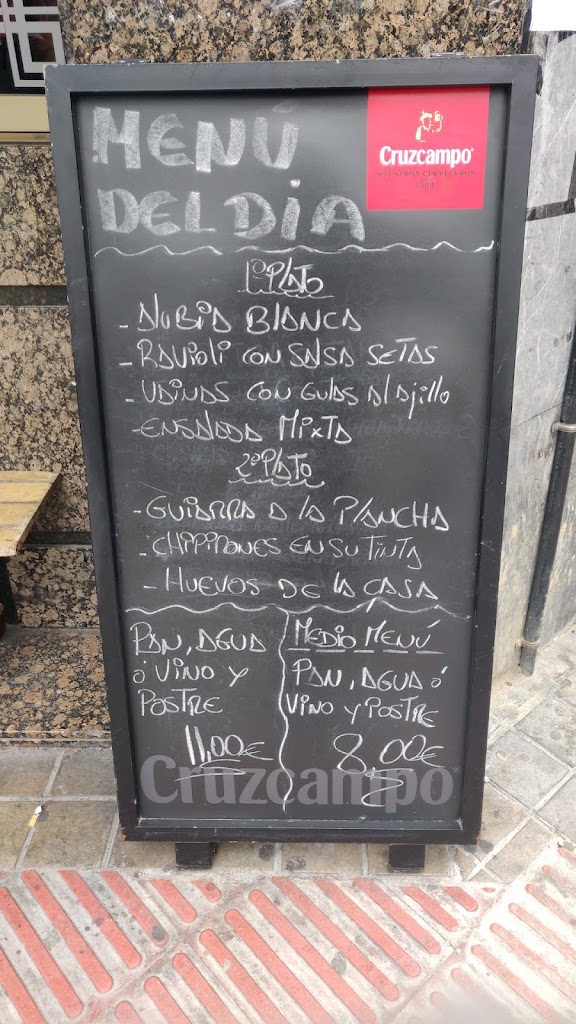 MENÚ
DEL DIA
Cruzcampo
MAESTROS CERVECEROS
1904
1º Plato
- Alubia Blanca
- Ravioli con salsa setas
- Vainas con gulas al ajillo
- Ensalada Mixta
2º Plato
- Guiarra a la plancha
- Chipirones en su tinta
- Huevos de la casa
Pan, agua
ó vino y
postre
11,00€
Medio Menú
Pan, agua ó
vino y postre
8,00€
Cruzcampo